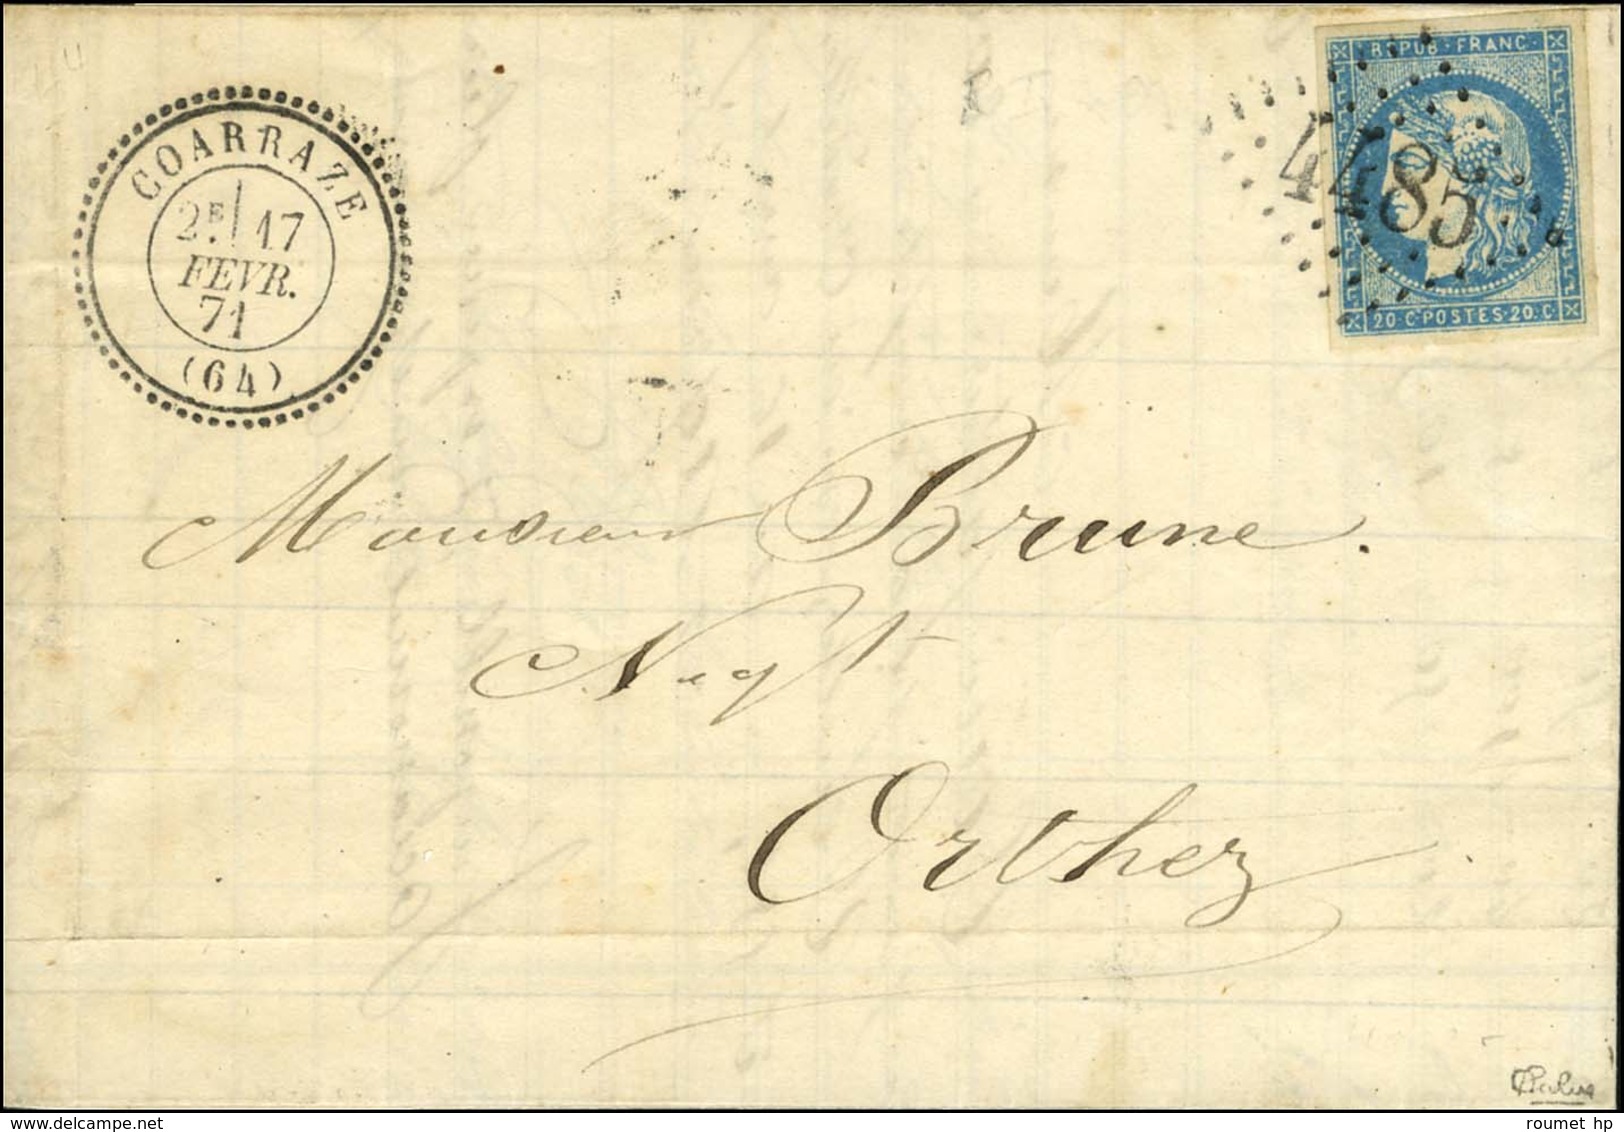 COARRAZE
2E 17
FEVR.
71
(64)
REPUB·FRANC·
4485
20·C·POSTES·20·C
Monsieur Brune.
Negt
Orthez
roumet hp